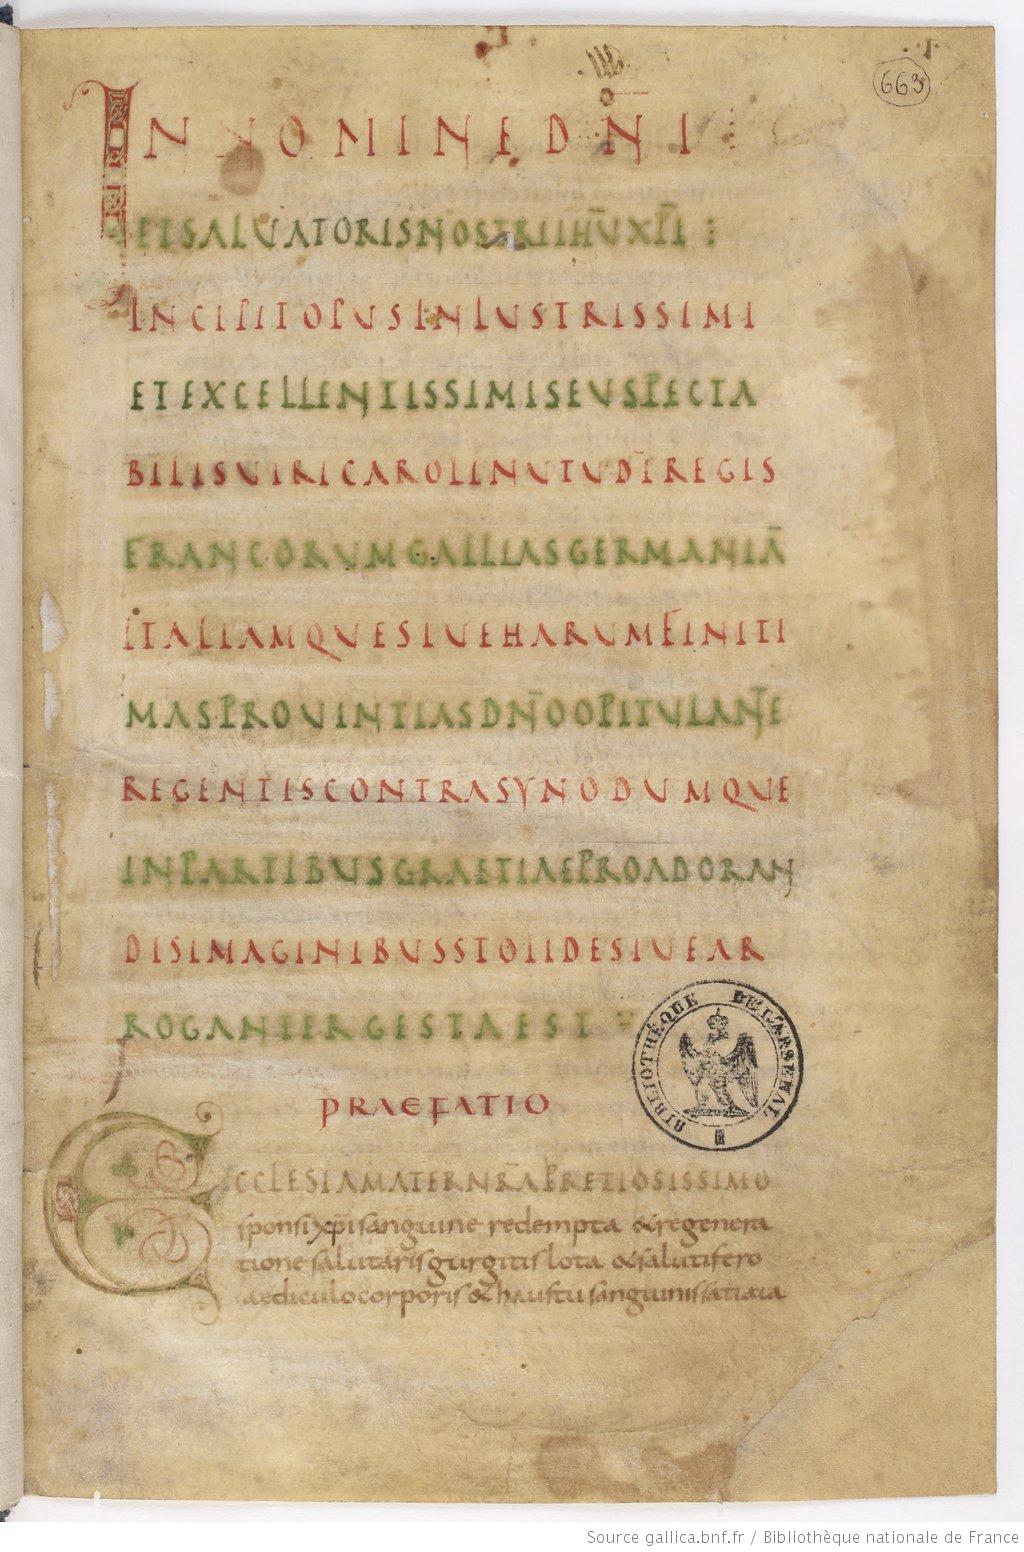 663
IN NOMINE DN̄I
ET SALVATORIS NOSTRI IHŪ XPĪ
INCIPIT OPUS INLUSTRISSIMI
ET EXCELLENTISSIMI SEU SPECTA
BILIS UIRI CAROLI NUTU DĪ REGIS
FRANCORUM GALLIAS GERMANIĀ
ITALIAMQUE SIUE HARUM FINITI
MAS PROUINTIAS DN̄O OPITULANTE
REGENTIS CONTRA SYNODUM QUE
IN PARTIBUS GRAETIAE PRO ADORAN
DIS IMAGINIBUS STOLIDE SIUE AR
ROGANTER GESTA EST
PRAEFATIO
ECCLESIA MATER NR̄A PRETIOSISSIMO
sponsi xp̄i sanguine redempta & regenera
tione salutaris gurgitis lota & salutifero
aediculo corporis & haustu sanguinis satiata
BIBLIOTHÈQUE DE L'ARSENAL
Source gallica.bnf.fr / Bibliothèque nationale de France